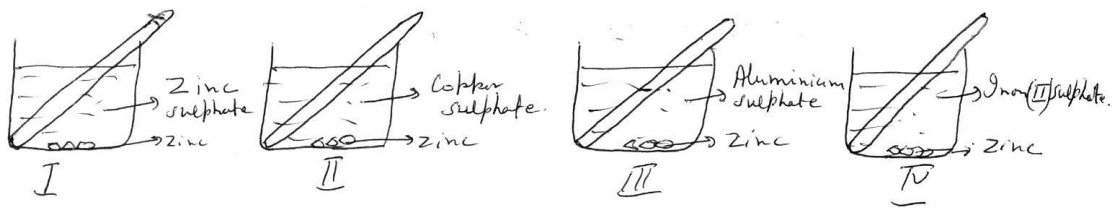 Zinc
sulphate
Zinc
I
Copper
sulphate.
Zinc
II
Aluminium
sulphate
Zinc
III
Iron(II)sulphate.
Zinc
IV